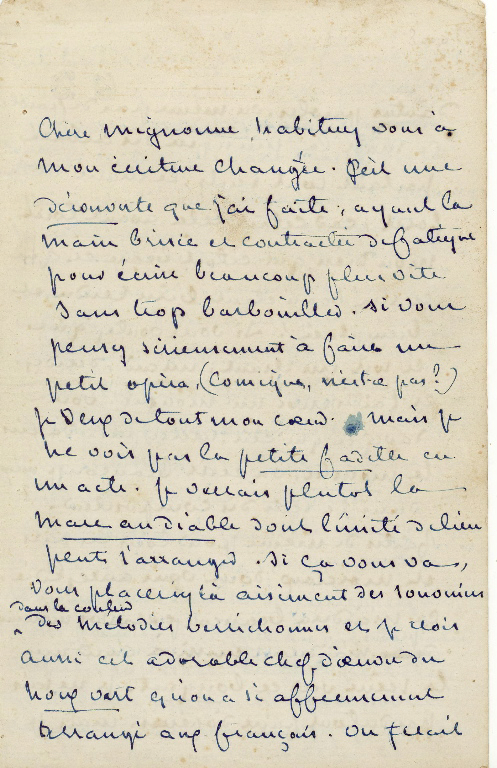 Chère mignonne, habituez vous à
mon écriture changée. C'est une
découverte que j'ai faite, ayant la
main brisée et contractée de fatigue
pour écrire beaucoup plus vite
sans trop barbouiller. Si vous
pensez sérieusement à faire un
petit opéra, (comique, n'est-ce pas?)
je veux de tout mon cœur. mais je
ne vois pas la petite fadette en
un acte. Je verrais plutôt la
mare au diable dont l'unité de lieu
peut s'arranger. Si ça vous va,
vous placerez là aisément des
dans la couleur
des mélodies berrichonnes et je vois
aussi cet adorable chef d'œuvre du
houx vert qu'on a si affreusement
arrangé aux français. On ferait